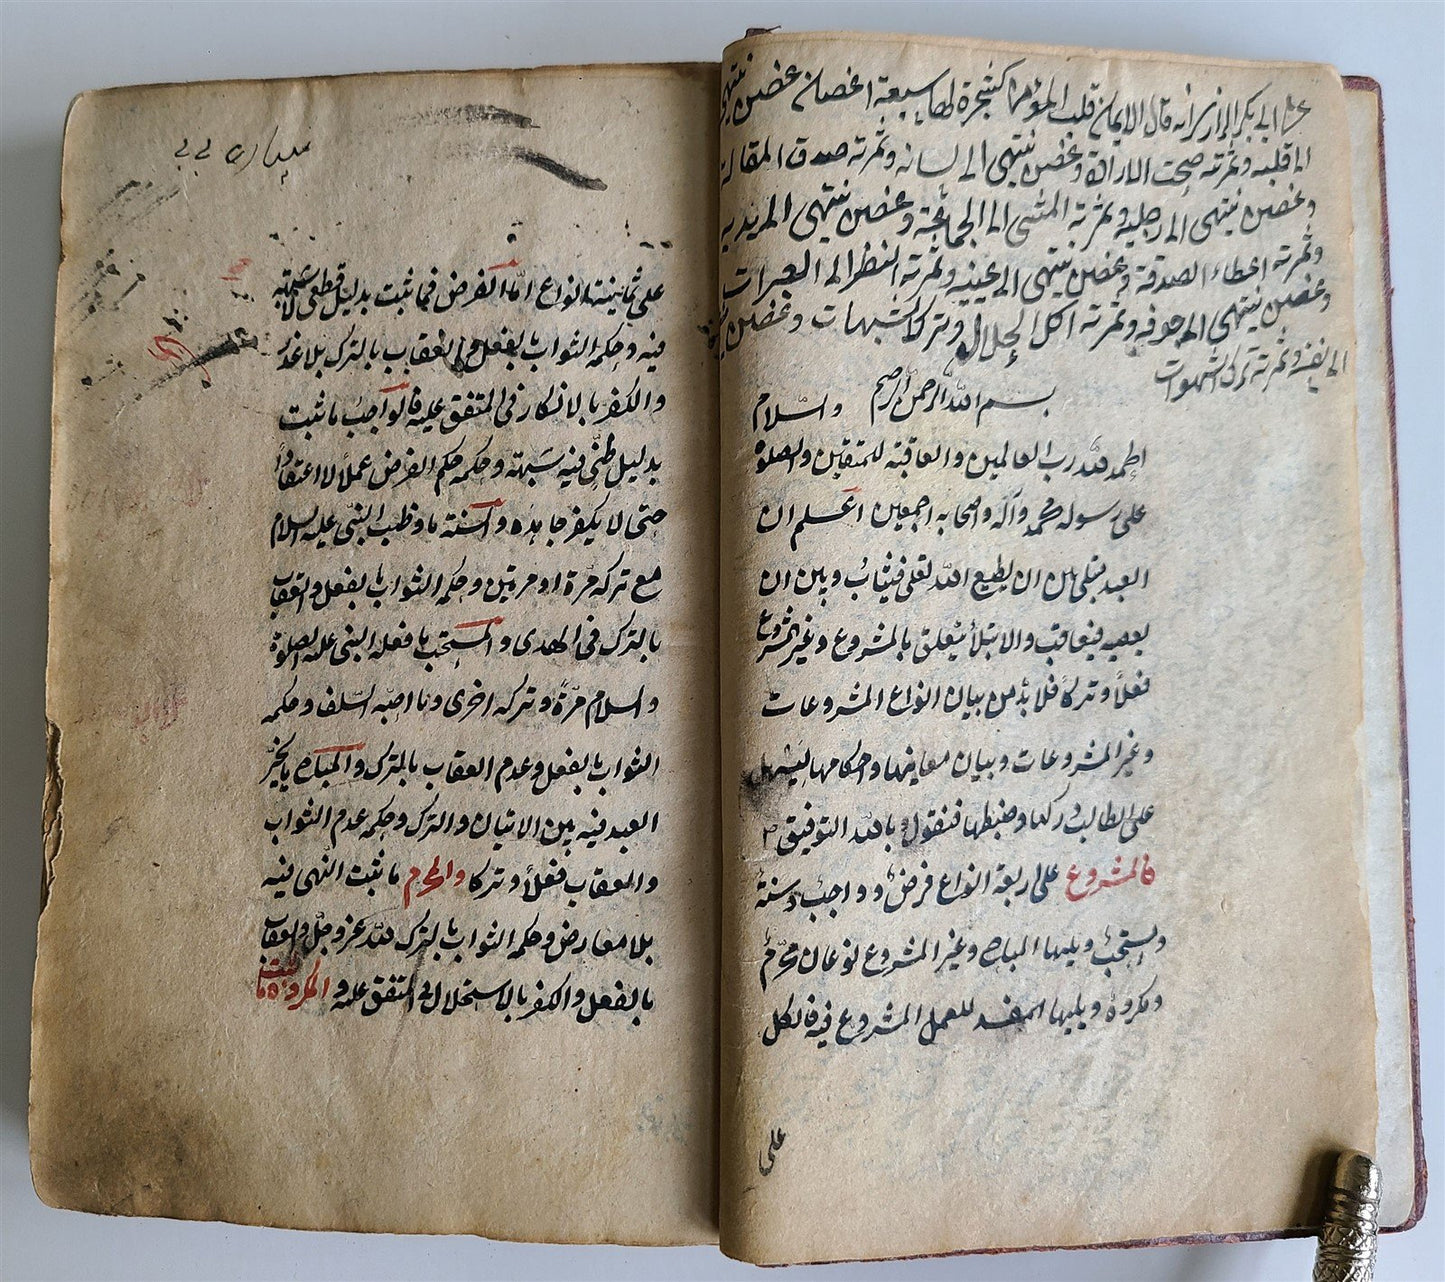 على ابي بكر انه قال الايمان قلب المؤمن كشجرة لها سبعة اغصان غصن ينتهى
الى قلبه وثمرته صحت الارادة وغصن ينتهى الى لسانه وثمرته صدق المقالة
وغصن ينتهى الى رجليه وثمرته المشى الى الجماعة وغصن ينتهى الى يديه
وثمرته اعطاء الصدقة وغصن ينتهى الى عينيه وثمرته النظر الى العبرات
وغصن ينتهى الى جوفه وثمرته اكل الحلال وترك الشبهات وغصن
الى نفسه وثمرته ترك الشهوات
بسم الله الرحمن الرحيم
والسلام
الحمد لله رب العالمين والعاقبة للمتقين والصلوة
على رسوله محمد وآله واصحابه اجمعين اعلم ان
العبد مبتلى بين ان يطيع الله تعلى فيثاب وبين ان
يعصيه فيعاقب والابتلأ يتعلق بالمشروع وغير المشروع
فعلاً وتركاً فلا بدّ من بيان انواع المشروعات
وغير المشروعات وبيان معانيها واحكامها ليتسهل
على الطالب دركها وضبطها فنقول وبالله التوفيق
فالمشروع على اربعة انواع فرض وواجب وسنة
ومستحب ويليها المباح وغير المشروع نوعان محرم
ومكروه ويليها المفسد للعمل المشروع فيه فالكل
على
على ثمانية انواع امّا الفرض فما ثبت بدليل قطعى لا شبهة
فيه وحكمه الثواب بالفعل والعقاب بالترك بلا عذر
والكفر بالانكار فى المتفق عليه فالواجب ما ثبت
بدليل ظنّى فيه شبهة وحكمه حكم الفرض عملاً لا اعتقادا
حتى لا يكفر جاحده والسنة ما وظب النبى عليه السلام
مع تركه مرّة او مرتين وحكمه الثواب بالفعل والعقاب
بالترك فى الهدى والمستحب ما فعله النبى عليه الصلوة
والسلام مرّة وتركه اخرى وما احبه السلف وحكمه
الثواب بالفعل وعدم العقاب بالترك والمباح ما يخيّر
العبد فيه بين الاتيان والترك وحكمه عدم الثواب
والعقاب فعلاً وتركا والمحرم ما ثبت النهى فيه
بلا معارض وحكمه الثواب بالترك لله عز وجلّ والعقاب
بالفعل والكفر بالاستحلال فى المتفق عليه والمكروه ما ثبت